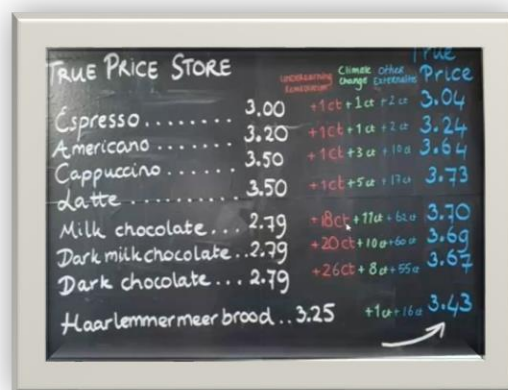 TRUE PRICE STORE
Underearning Remediation
Climate change
Other Externalities
True Price
Espresso........ 3.00 +1ct +1ct +2ct 3.04
Americano....... 3.20 +1ct +1ct +2ct 3.24
Cappuccino...... 3.50 +1ct +3ct +10ct 3.64
Latte........... 3.50 +1ct +5ct +17ct 3.73
Milk chocolate... 2.79 +18ct +11ct +62ct 3.70
Dark milk chocolate.. 2.79 +20ct +10ct +60ct 3.69
Dark chocolate... 2.79 +26ct +8ct +55ct 3.67
Haarlemmermeer brood.. 3.25 +1ct +16ct 3.43